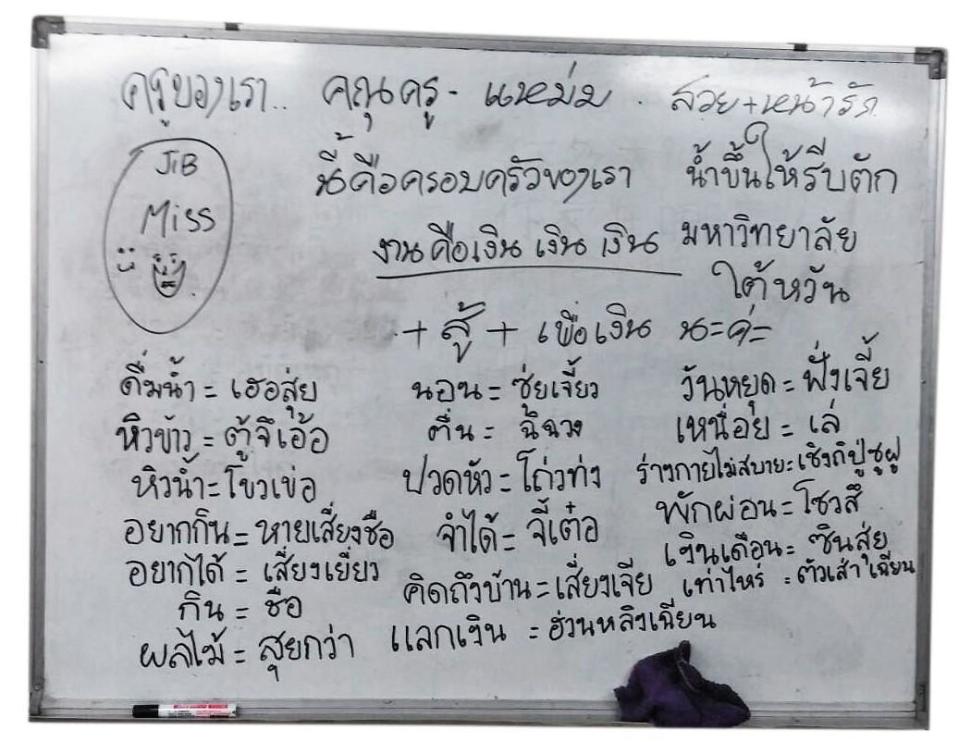 ครูของเรา.. คุณครู - แหม่ม . สวย+หน้ารัก
JiB
Miss
นี้คือครอบครัวของเรา
น้ำขึ้นให้รีบตัก
งานคือเงิน เงิน เงิน
มหาวิทยาลัย
ใต้หวัน
+ สู้ + เพื่อเงิน นะค่ะ
ดื่มน้ำ = เฮอสุ่ย
หิวข้าว = ตู้จึเอ้อ
หิวน้ำ = โขวเข่อ
อยากกิน = หายเสี่ยงชือ
อยากได้ = เสี่ยงเยี่ยว
กิน = ชือ
ผลไม้ = สุยกว่า
นอน = ซุ่ยเจี้ยว
ตื่น = ฉี่ฉวง
ปวดหัว = โถ่วท่ง
จำได้ = จี้เต๋อ
คิดถึงบ้าน = เสี่ยงเจีย
แลกเงิน = ฮ่วนหลิงเฉียน
วันหยุด = ฟั่งเจี้ย
เหนื่อย = เล่
ร่างกายไม่สบาย = เชิงถิปู่ซูฝู
พักผ่อน = โซวสี
เงินเดือน = ซินสุ่ย
เท่าไหร่ = ต้วเส้าเฉียน